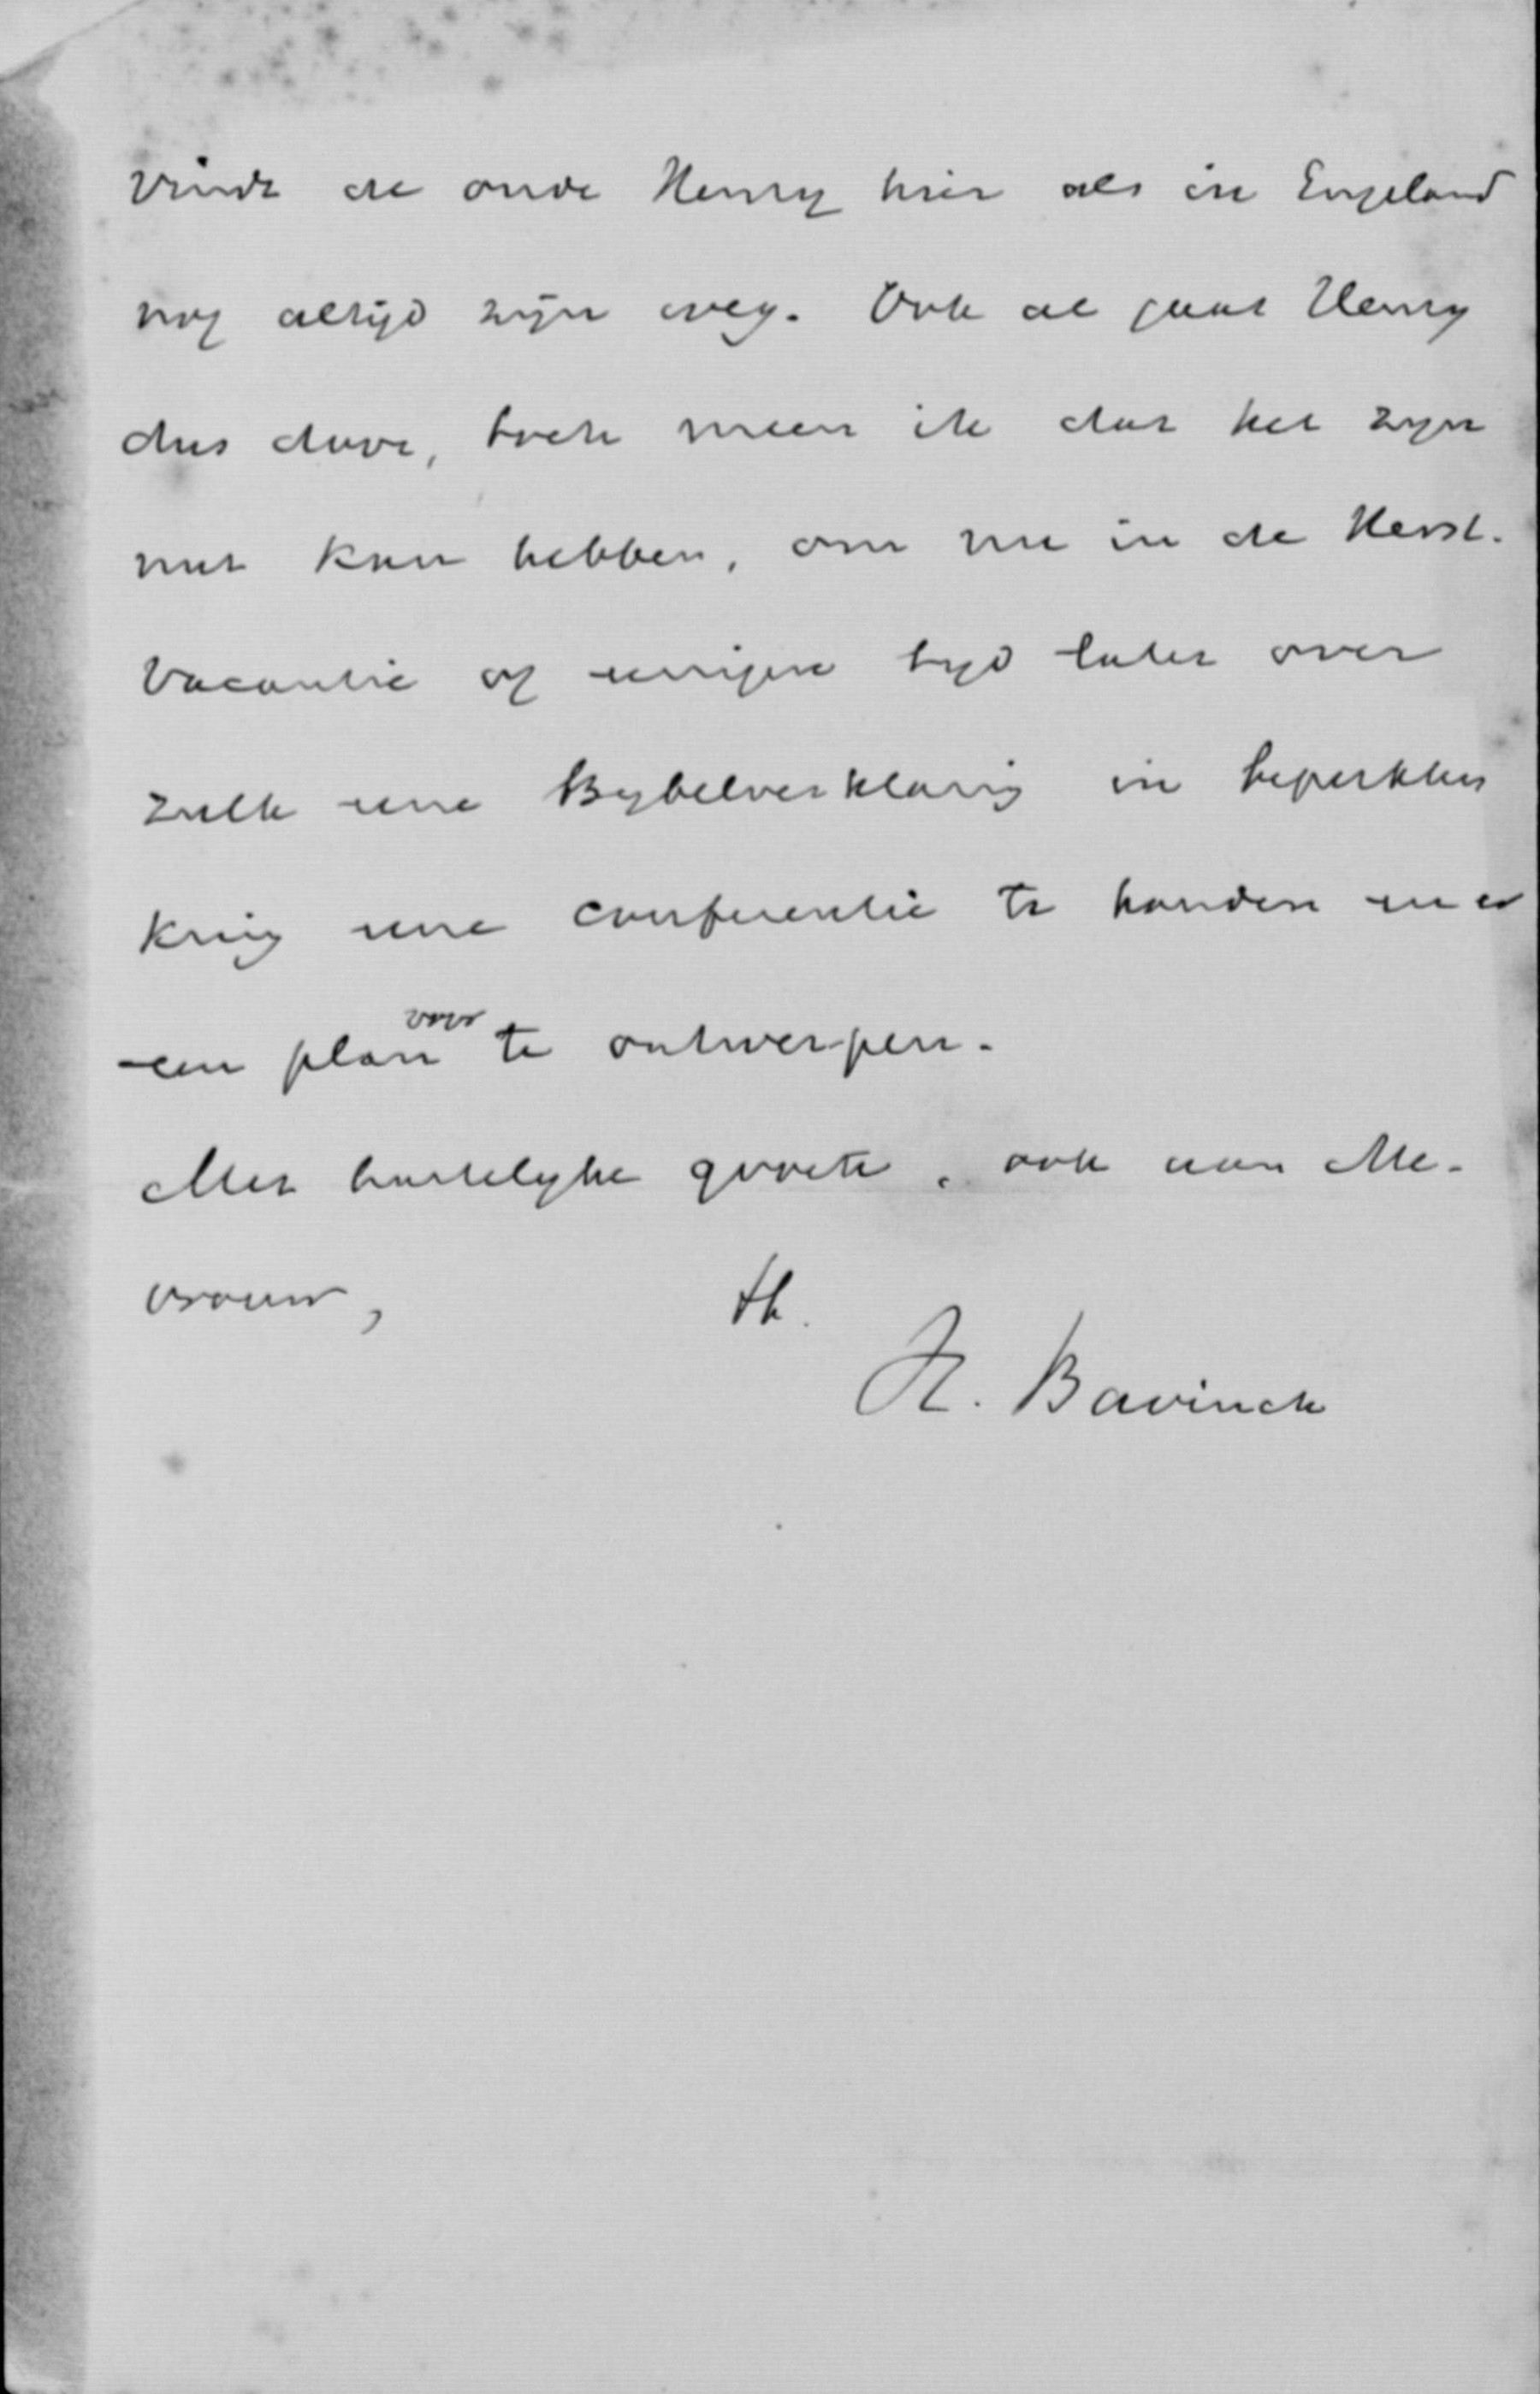 vindt de oude Henry hier als in Engeland
nog altijd zijn weg. Ook al gaat Henry
dus door, toch meen ik dat het zijn
nut kan hebben, om nu in de Kerst-
vacantie of eenigen tijd later over
zulk eene Bijbelverklaring in beperkten
kring eene conferentie te houden en er
een plan voor te ontwerpen.
Met hartelijke groete, ook aan Me-
vrouw,
tt.
H. Bavinck